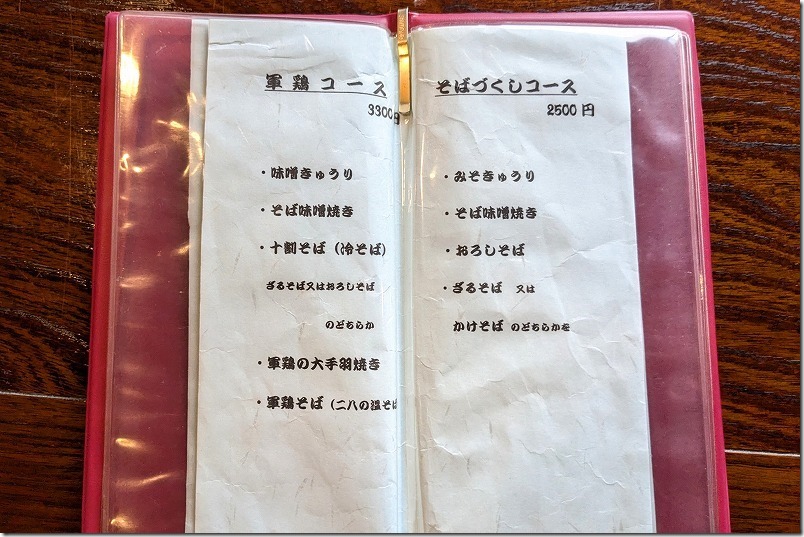 軍鶏コース
3300円
・味噌きゅうり
・そば味噌焼き
・十割そば（冷そば）
ざるそば又はおろしそば
のどちらか
・軍鶏の大手羽焼き
・軍鶏そば（二八の温そば
そばづくしコース
2500円
・みそきゅうり
・そば味噌焼き
・おろしそば
・ざるそば 又は
かけそば のどちらかを